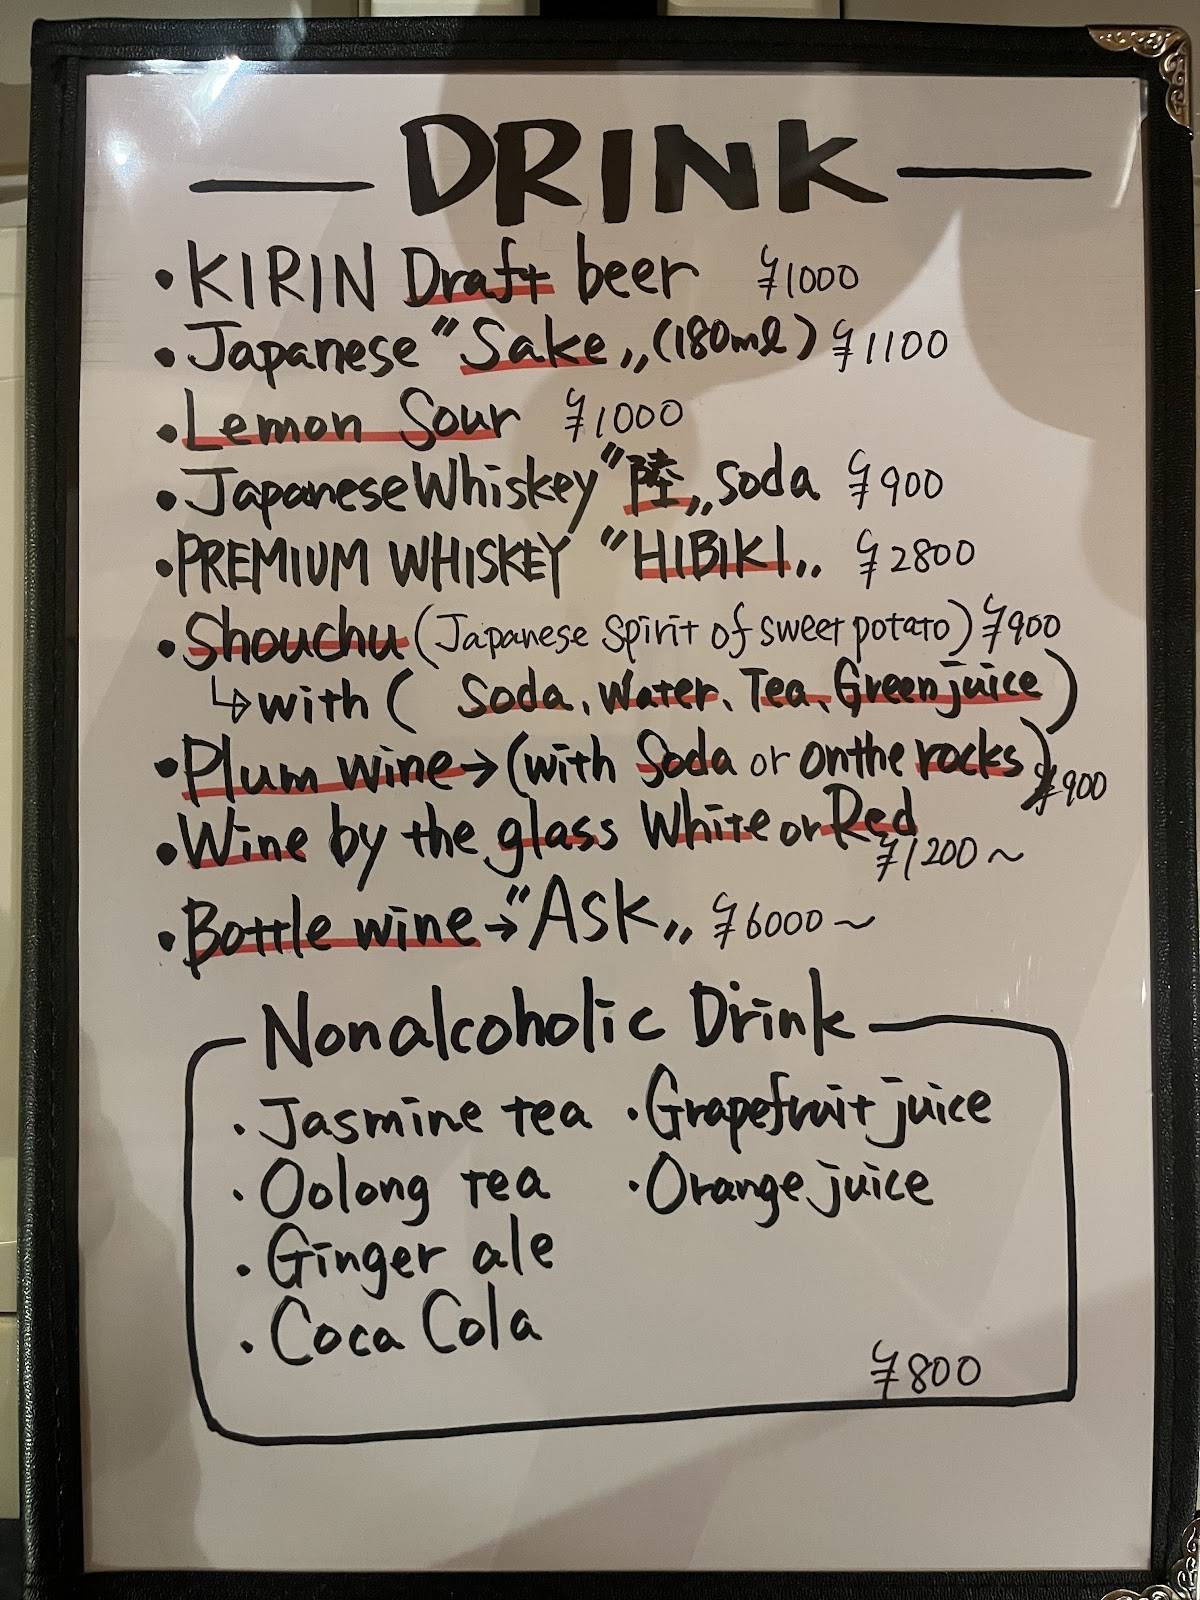 DRINK
・KIRIN Draft beer ¥1000
・Japanese "Sake„ (180ml) ¥1100
・Lemon Sour ¥1000
・Japanese Whiskey "陸„ soda ¥900
・PREMIUM WHISKEY "HIBIKI„ ¥2800
・Shouchu (Japanese Spirit of sweet potato) ¥900
↳ with ( Soda、Water、Tea、Green juice )
・Plum wine → (with Soda or on the rocks) ¥900
・Wine by the glass White or Red ¥1200～
・Bottle wine → "Ask„ ¥6000～
Nonalcoholic Drink
・Jasmine tea ・Grapefruit juice
・Oolong tea ・Orange juice
・Ginger ale
・Coca Cola
¥800